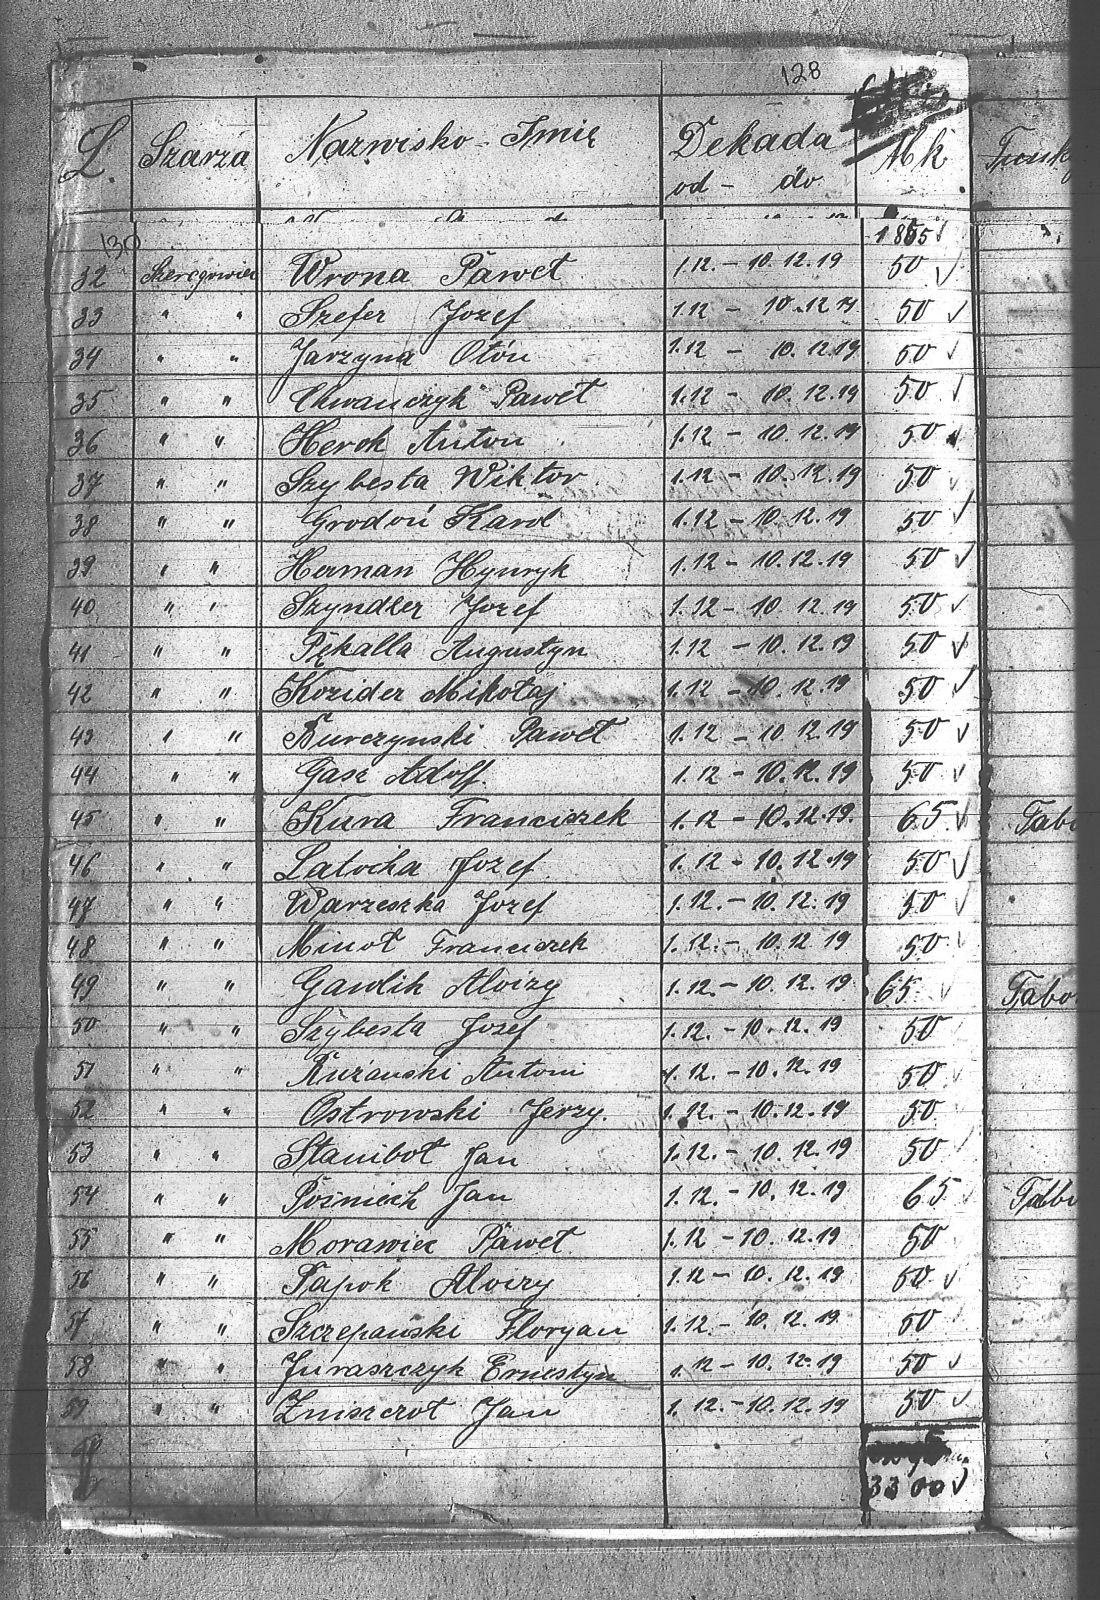 128
L. Szarża Nazwisko - Imię Dekada od - do Mk
130 1855 ✓
32 Szeregowiec Wrona Paweł 1.12. - 10.12.19 50 ✓
33 " " Szefer Jozef 1.12 - 10.12.19 50 ✓
34 " " Jarzyna Otón 1.12 - 10.12.19 50 ✓
35 " " Chwańczyk Paweł 1.12 - 10.12.19 50 ✓
36 " " Herok Anton 1.12 - 10.12.19 50 ✓
37 " " Szybesta Wiktor 1.12 - 10.12.19 50 ✓
38 " " Grodoń Karol 1.12 - 10.12.19 50 ✓
39 " " Herman Hynryk 1.12 - 10.12.19 50 ✓
40 " " Szyndler Jozef 1.12 - 10.12.19 50 ✓
41 " " Pękalla Augustyn 1.12 - 10.12.19 50 ✓
42 " " Kozider Mikołaj 1.12 - 10.12.19 50 ✓
43 " " Burczynski Paweł 1.12 - 10.12.19 50 ✓
44 " " Gasz Adolf. 1.12 - 10.12.19 50 ✓
45 " " Kura Franciszek 1.12 - 10.12.19. 65 ✓ Tabo
46 " " Latocha Jozef. 1.12 - 10.12.19 50 ✓
47 " " Warzeszka Jozef 1.12. - 10.12.19 50 ✓
48 " " Minoł Franciszek 1.12. - 10.12.19 50 ✓
49 " " Gawlik Aloizy 1.12. - 10.12.19 65 ✓ Tabo
50 " " Szybesta Jozef 1.12. - 10.12.19 50
51 " " Rużański Antoni 1.12. - 10.12.19 50 ✓
52 " " Ostrowski Jerzy. 1.12. - 10.12.19 50
53 " " Staniboł Jan 1.12. - 10.12.19 50 ✓
54 " " Pośniech Jan 1.12. - 10.12.19 65 ✓ Tabo
55 " " Morawiec Paweł 1.12 - 10.12.19 50
56 " " Papok Aloizy 1.12 - 10.12.19 50 ✓
57 " " Szczepański Floryan 1.12. - 10.12.19. 50
58 " " Juraszczyk Ernestyn 1.12 - 10.12.19 50 ✓
59 " " Zniszczoł Jan 1.12. - 10.12.19 50 ✓
3300 ✓